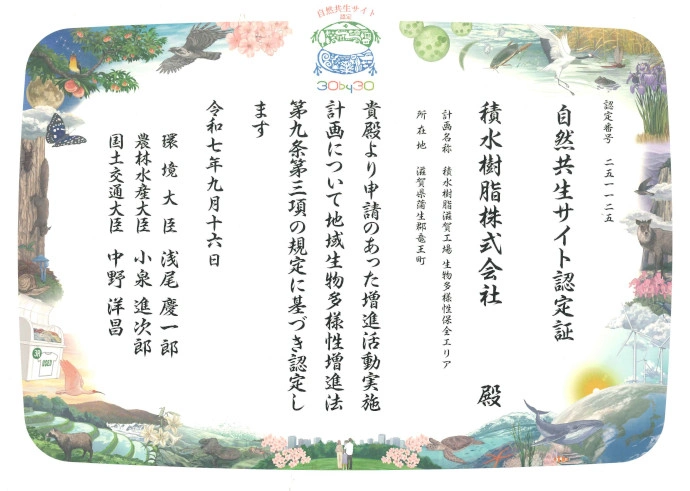 自然共生サイト
認定
30by30
認定番号 二五―一―二五
自然共生サイト認定証
積水樹脂株式会社 殿
計画名称 積水樹脂滋賀工場 生物多様性保全エリア
所在地 滋賀県蒲生郡竜王町
貴殿より申請のあった増進活動実施
計画について地域生物多様性増進法
第九条第三項の規定に基づき認定し
ます
令和七年九月十六日
環境大臣 浅尾 慶一郎
農林水産大臣 小泉 進次郎
国土交通大臣 中野 洋昌